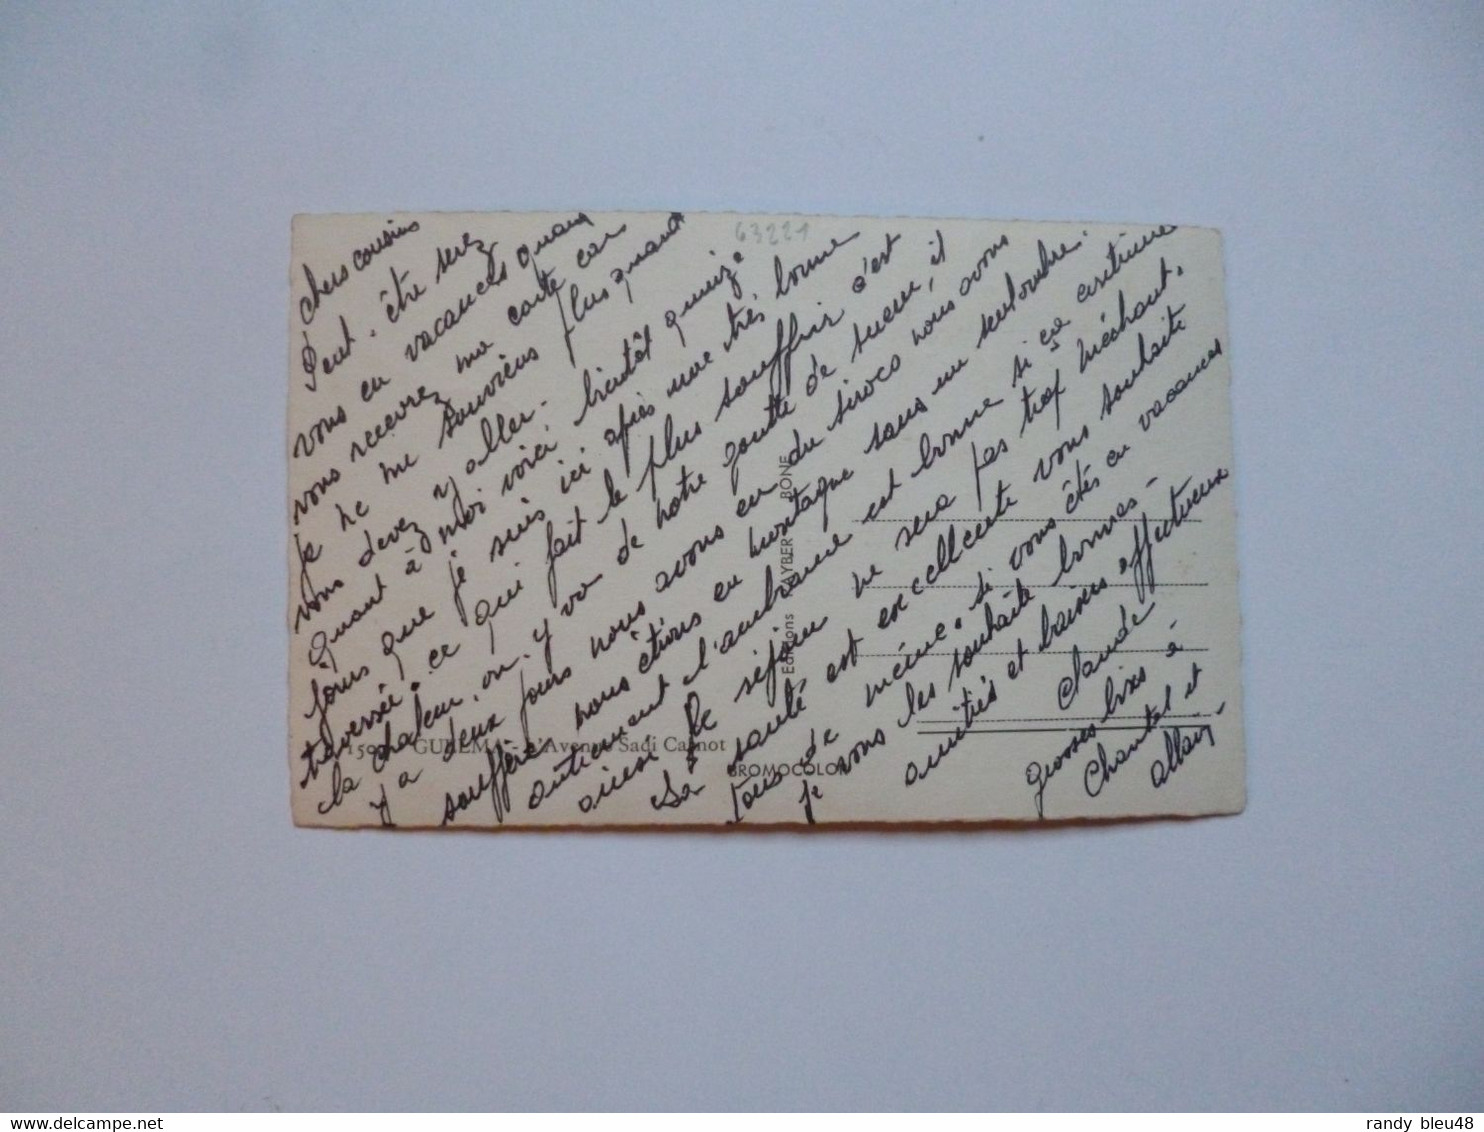 63221
chers cousins
Peut-être serez
vous en vacances quand
vous recevrez ma carte car
je ne me souviens plus quand
vous devez y aller.
quant à moi voici bientôt quinze
jours que je suis ici après une très bonne
traversée. ce qui fait le plus souffrir c'est
la chaleur, on y va de notre goutte de sueur, il
y a deux jours nous avons eu du siroco nous avons
souffert, nous étions en montagne sans un seul ombre.
autrement l'ambiance est bonne si ça continue
ainsi le séjour ne sera pas trop méchant.
La santé est excellente vous souhaite
tous de même. si vous êtes en vacances
je vous les souhaite bonnes -
amitiés et baisers affectueux
Claude
grosses bixs à
Chantal et
Allain
GUELMA - L'Avenue Sadi Carnot
BROMOCOLOR
Editions BONE
randy bleu48